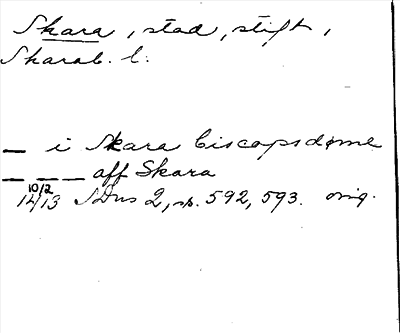 Skara, stad, stift,
Skarab. l.
— i Skara biscopsdøme
— — — aff Skara
10/2
1413 SDns 2, sp. 592, 593. orig.